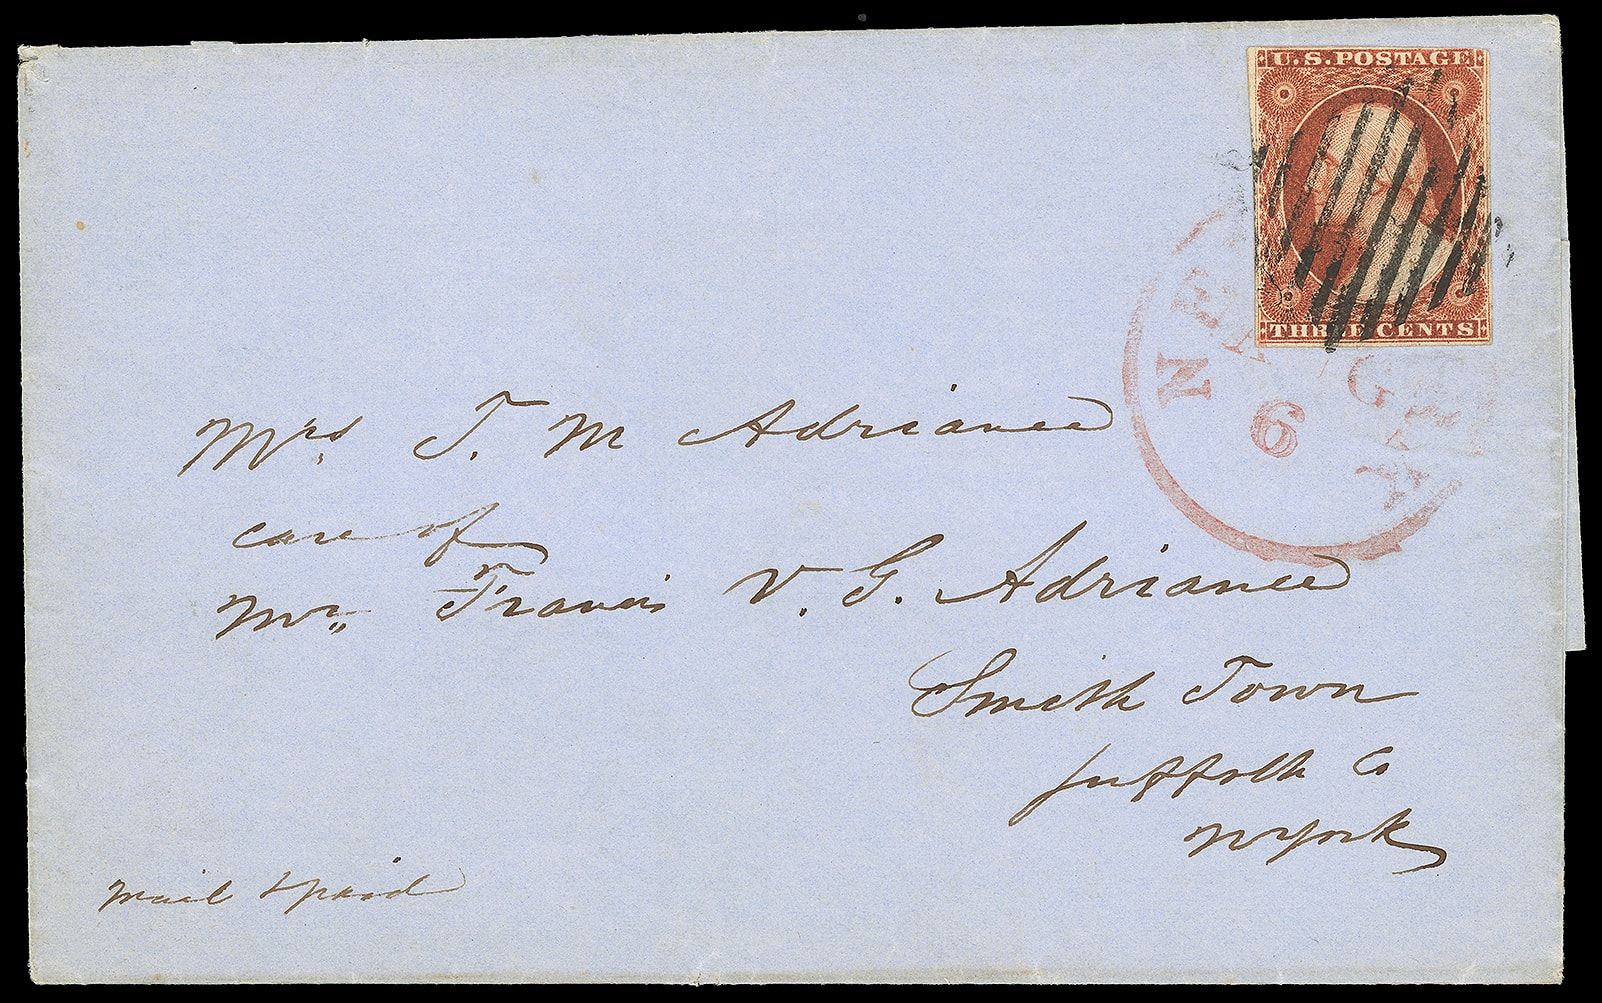 U.S. POSTAGE
THREE CENTS
6
Mrs. T. M Adriance
care of
Mr. Francis V. G. Adriance
Smith Town
Suffolk Co
N York
Mail & paid